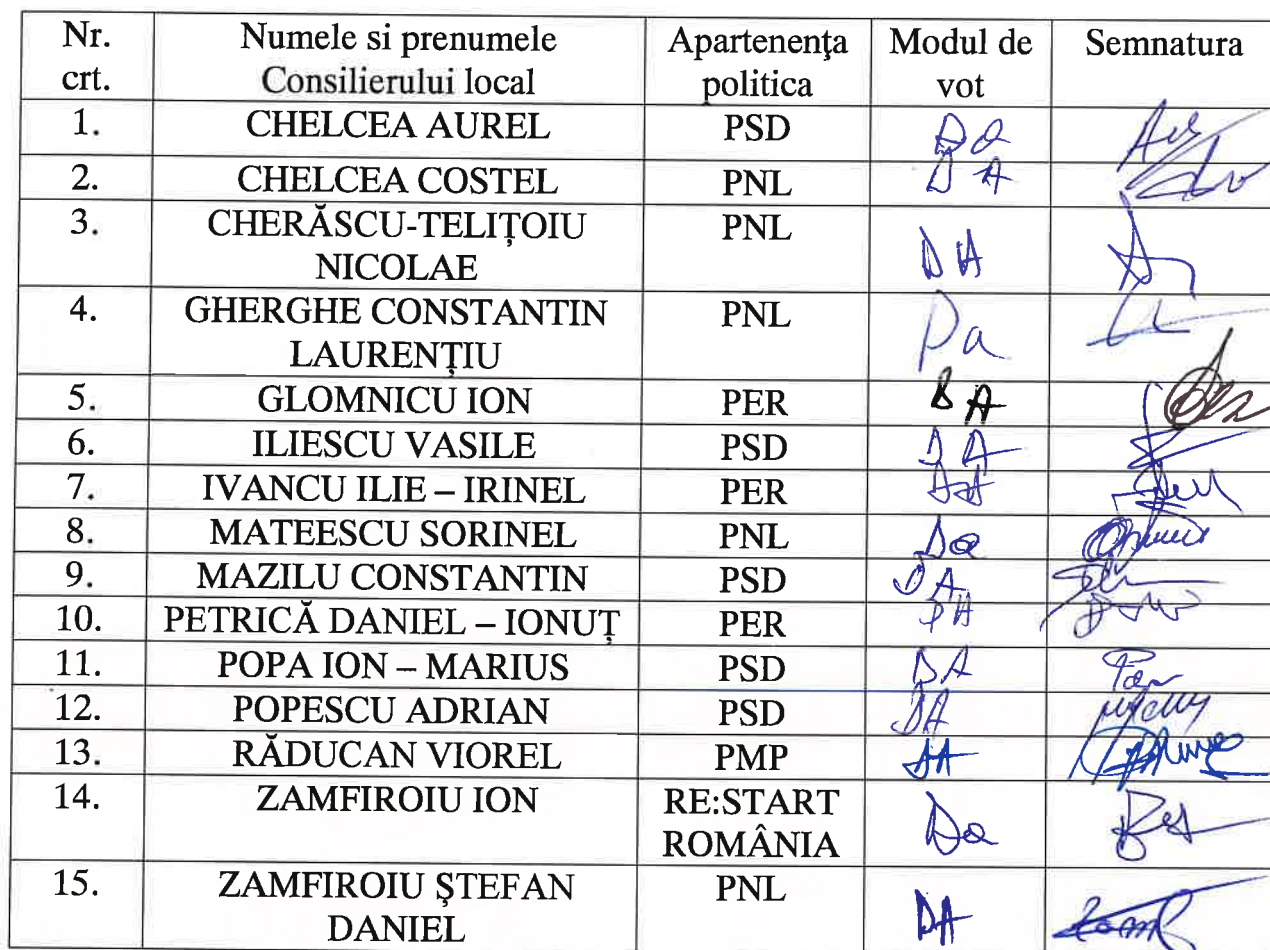 Nr. crt. Numele si prenumele Consilierului local Apartenenţa politica Modul de vot Semnatura
1. CHELCEA AUREL PSD Da
2. CHELCEA COSTEL PNL DA
3. CHERĂSCU-TELIȚOIU NICOLAE PNL DA
4. GHERGHE CONSTANTIN LAURENȚIU PNL Da
5. GLOMNICU ION PER DA
6. ILIESCU VASILE PSD DA
7. IVANCU ILIE – IRINEL PER DA
8. MATEESCU SORINEL PNL Da
9. MAZILU CONSTANTIN PSD DA
10. PETRICĂ DANIEL – IONUȚ PER DA
11. POPA ION – MARIUS PSD DA
12. POPESCU ADRIAN PSD DA
13. RĂDUCAN VIOREL PMP DA
14. ZAMFIROIU ION RE:START ROMÂNIA Da
15. ZAMFIROIU ŞTEFAN DANIEL PNL DA